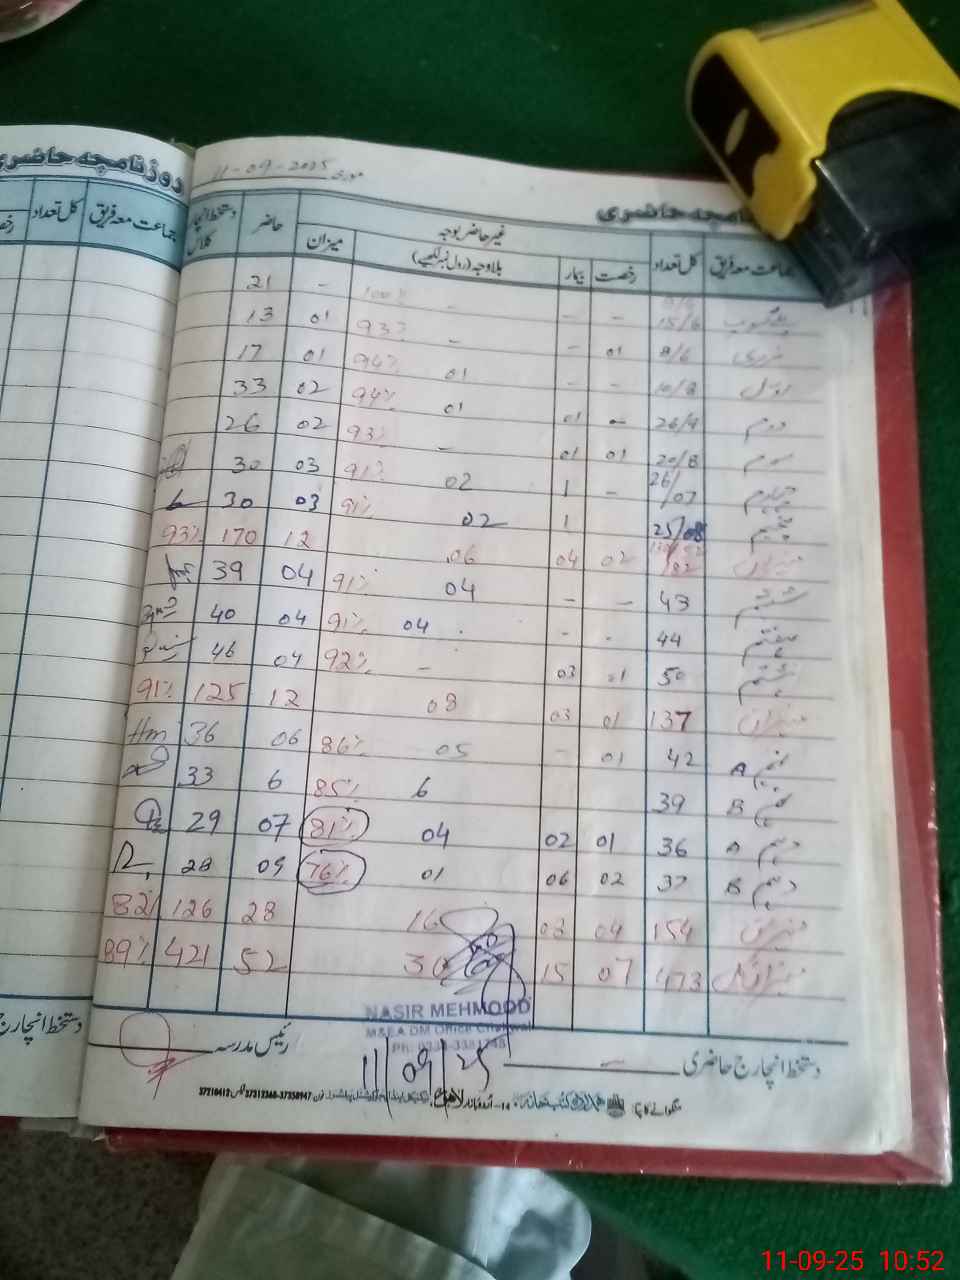 روزنامچہ حاضری
مورخہ 11-09-2025
جماعت معہ فریق کل تعداد
جماعت معہ فریق کل تعداد غیر حاضر بوجہ حاضر دستخط انچارج کلاس
رخصت بیمار بلاوجہ (رول نمبر لکھیے) میزان
- - - - 21
15/6 - - - 93% 01 13
8/6 01 - - 94% 01 17
10/8 - - 01 94% 02 33
دوم 26/9 - 01 01 93% 02 26
سوم 20/8 01 01 - 91% 03 30
چہارم 26/07 - 1 02 91% 03 30
پنجم 25/08 1 02
02 04 06 12 170 93%
ششم 43 - - 04 91% 04 39
ہفتم 44 - - 04 91% 04 40
ہشتم 50 01 03 - 92% 04 46
میزان 137 01 03 08 12 125 91%
نہم A 42 01 - 05 86% 06 36
نہم B 39 6 85% 6 33
دہم A 36 01 02 04 81% 07 29
دہم B 37 02 06 01 76% 09 28
154 04 08 16 28 126 82%
473 07 15 30 52 421 89%
NASIR MEHMOOD
M&EA DM Office Chakwal
دستخط انچارج حاضری
رئیس مدرسہ
11/09/25
دستخط انچارج
11-09-25 10:52